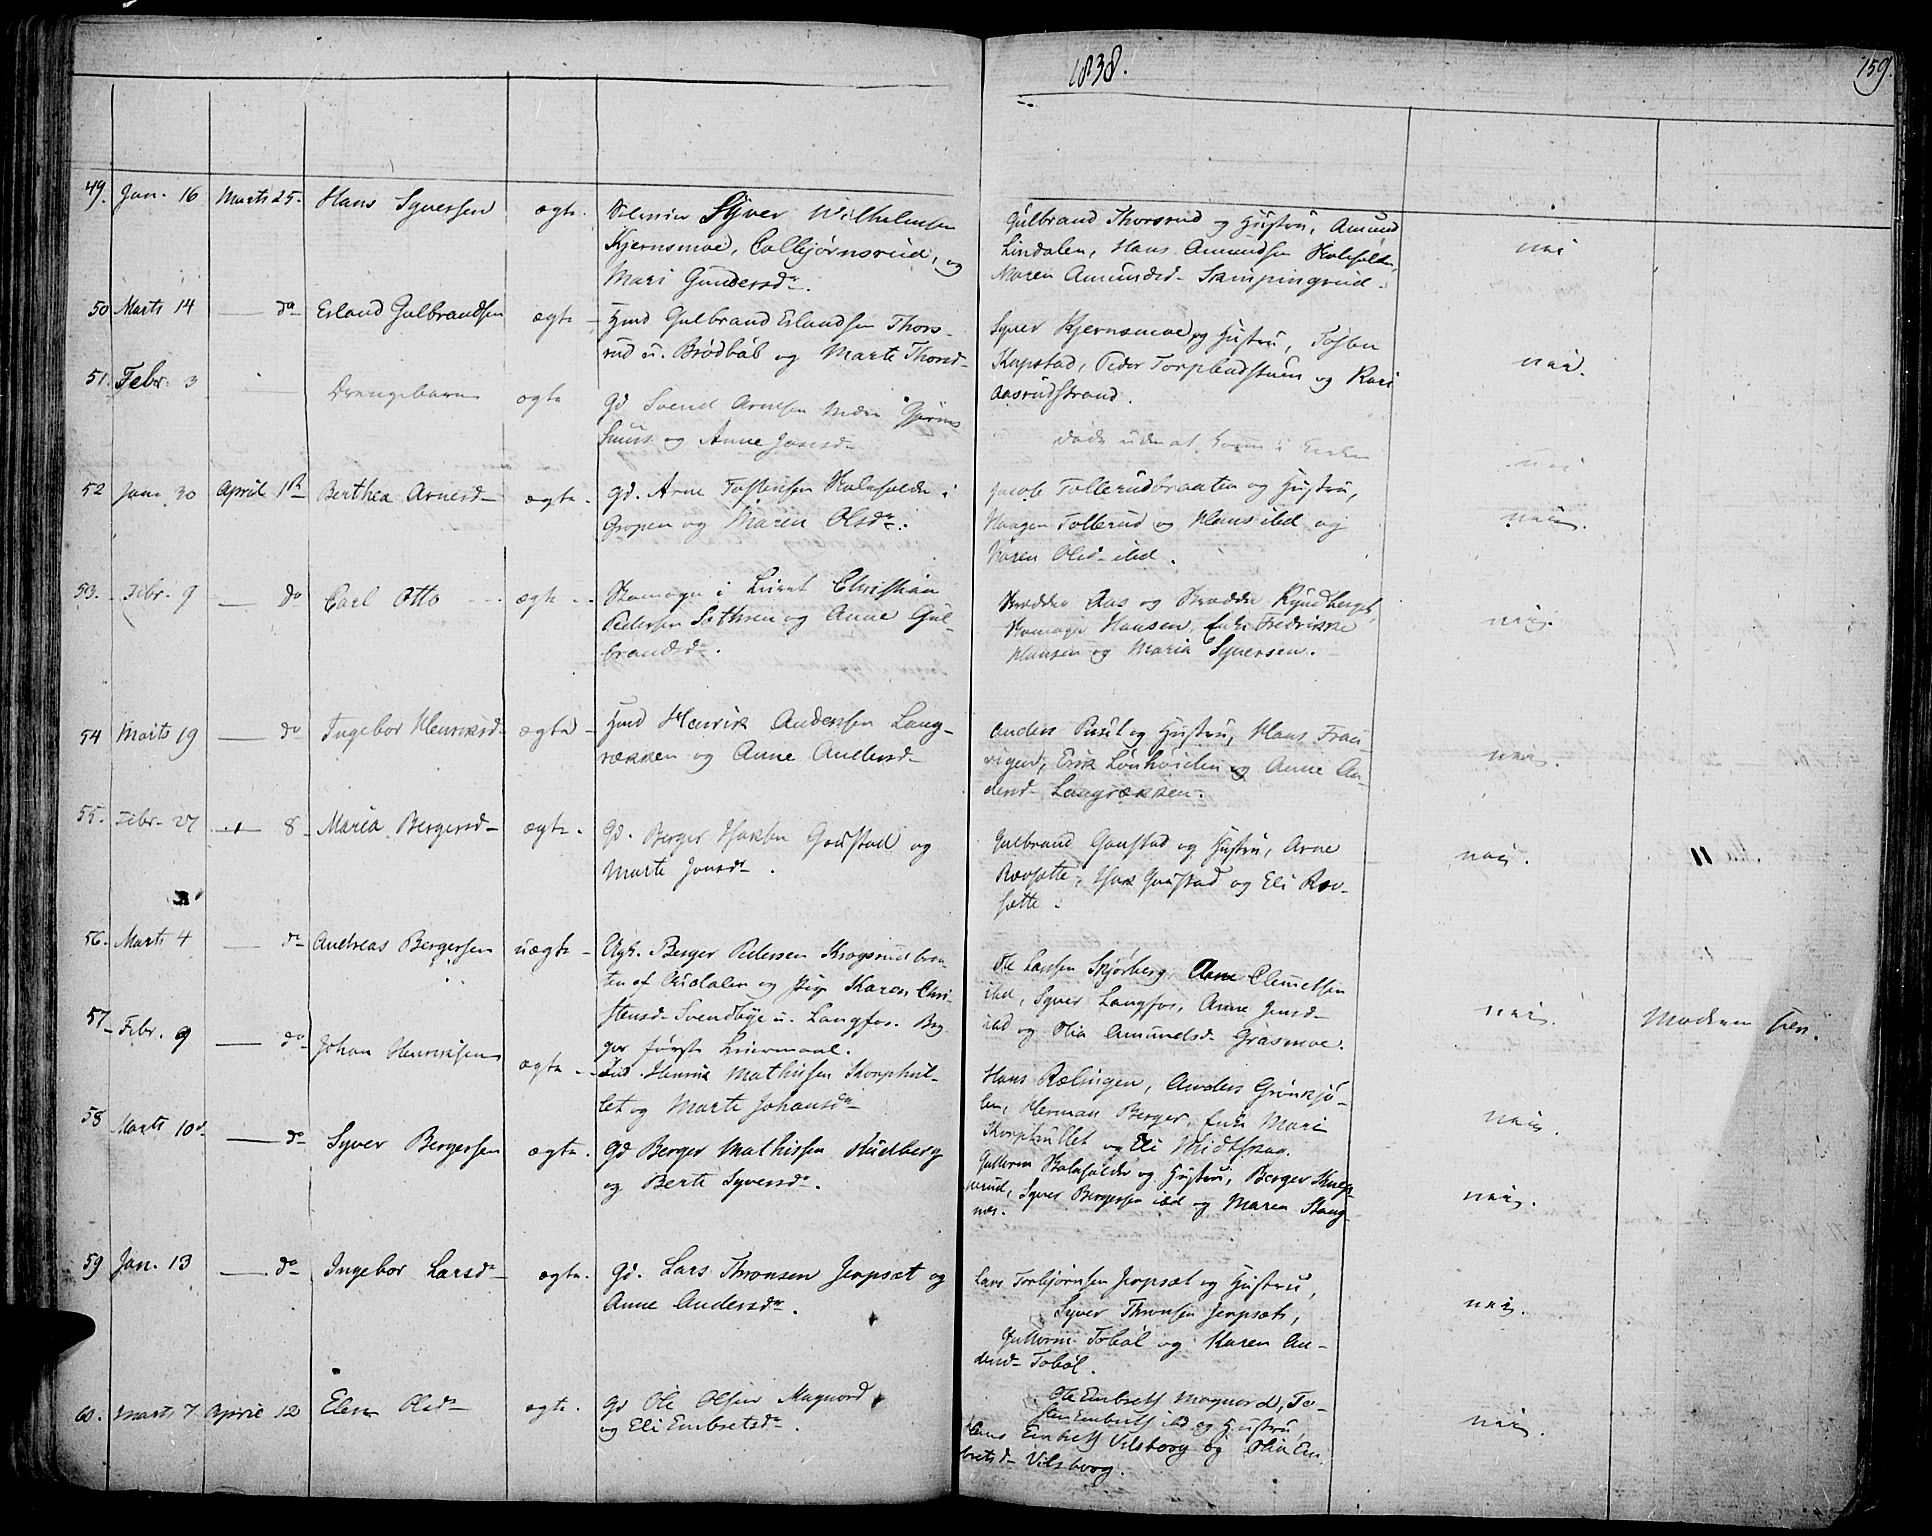 1838.
159.
49. Jan. 16 Marts 25. Hans Syversen ægte. Syver Wilhelmsen
Kjernsmoe, Colbjørnsrud, og
Mari Gundersdr.
Gulbrand Thorsrud og Hustru, Amund
Lindalen, Hans Amundsen
Maren Amundsd.
nei
50 Marts 14 — do Erland Gulbrandsen ægte Hmd Gulbrand Erlandsen Thors-
rud u. Brødbøl og Marte Thorsd-
Syver Kjernsmoe og Hustru, Tosten
Kopstad, Peder og Kari
Aasrudstrand.
nei.
51. Febr. 3 Drengebarn ægte Gd Svend Arnesen
og Anne Jonsd-
døde uden at komme i Kirken
nei
52 Jan. 30 April 1st Berthea Arnesd- ægte. Gd. Arne Tostensen Kolnfolde i
Gropen og Maren Olsdr.
Jacob Tollerudbraaten og Hustru,
Haagen Tollerud og Hans ibd og
Karen Olsd- ibd.
nei.
53. Febr. 9 — do Carl Otto ægte Skomager i Christian
Pedersen Sæthren og Anne Gul-
brandsdr.
Aas og Ryndberget,
Skomager Hansen, Enke Fredrikke
Hansen og Maria Syversen.
nei.
54 Marts 19 — do Ingebor Henriksd- ægte Hmd Henrik Anderssen Lang-
rækken og Anne Andersd-
Anders Pusil og Hustru, Hans Frau-
rigud, Erik Lönhöiden og Anne An-
dersd- Langrækken.
nei.
55. Febr. 27 — 8- Maria Bergersd- ægte. Gd. Berger Gaustad og
Marte Jonsdr.
Gulbrand Gaustad og Hustru, Arne
Rævsætte, Gaustad og Eli Ræv-
sætte.
nei.
11
56. Marts 4 — do Andreas Bergersen uægte- Ugk. Berger Pedersen Krogsrudbraa-
ten af Audalen og Pige Karen Chri-
stensd- Svendbye u. Langfos. Beg-
ges første Leiermaal.
Ole Larsen Skjørberg, Arne Clemetsen
ibd, Syver Langfos, Anne Jensd-
ibd og Olia Amundsd- Grasmoe.
nei.
Moderen
57 Febr. 9 — do Johan Henriksen ægte Henrik Mathissen Korphul-
let og Marte Johansdr
Hans Rælingen, Anders Grönkjö-
len, Herman Berger, Enke Mari
Korphullet og Eli Midtskog.
nei.
58 Marts 10 — do Syver Bergersen ægte. Gd Berger Mathissen Hudberg
og Berte Syversdr.
Guttorm Kolnfolde og Hustru, Berger
Syver Bergersen ibd og Maren Stang-
næs.
nei.
59 Jan. 13 — do Ingebor Larsdr ægte. Gd. Lars Thronsen Jerpset og
Anne Andersdr.
Lars Torbjørnsen Jerpset og Hustru,
Syver Thronsen Jerpset,
Guttorm Tobøl og Karen An-
dersd- Tobøl.
nei.
60. Marts 7 April 12 Elen Olsdr ægte. Gd Ole Olsen Magnord
og Eli Embretsdr.
Ole Embretss Magnord, To-
sten Embretss ibd og Hustru,
Hans Embretss Vilsborg og Olia Em-
bretsd- Vilsborg.
nei.